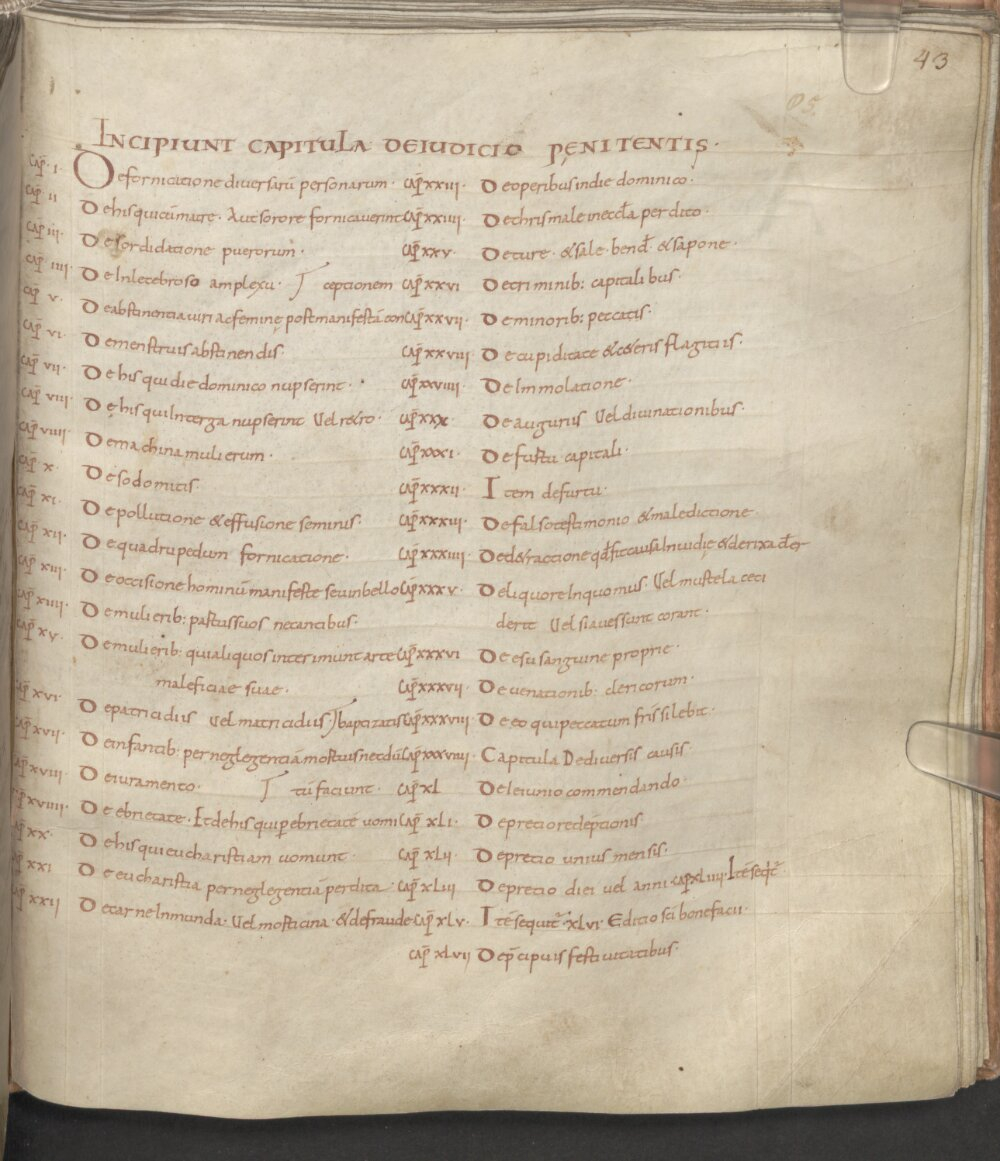 43
INCIPIUNT CAPITULA DE IUDICIO PENITENTIS·
CAP̄ I· De fornicatione diversarū personarum·
CAP̄ II De his qui cū matre· Aut sorore fornicaverint
CAP̄ III· De sordidatione puerorum·
CAP̄ IIII· De Inlecebroso amplexu· ceptionem
CAP̄ V· De abstinentia viri ac feminę post manifestā con
CAP̄ VI· De menstruis abstinendis·
CAP̄ VII· De his qui die dominico nupserint·
CAP̄ VIII· De his qui In terga nupserint Vel retro·
CAP̄ VIIII· De machina mulierum·
CAP̄ X· De sodomitis·
CAP̄ XI· De pollutione & effusione seminis·
CAP̄ XII· De quadrupedum fornicatione·
CAP̄ XIII· De occisione hominū manifeste seu in bello
CAP̄ XIIII· De mulierib: partus suos necantibus·
CAP̄ XV· De mulierib: qui aliquos interimunt arte
maleficiae suae·
CAP̄ XVI· De patricidiis Vel matricidiis· baptizatis
CAP̄ XVII· De infantib: per neglegentiā mortuis necdū
CAP̄ XVIII· De iuramento· tū faciunt·
CAP̄ XVIIII· De ebrietate· It de his qui p ebrietatē vomi
CAP̄ XX· De his qui eucharistiam uomunt·
CAP̄ XXI De eucharistia per neglegentiā perdita·
CAP̄ XXII De carne Inmunda· Vel morticina· & de fraude·
CAP̄ XXIII· De operibus in die dominico·
CAP̄ XXIIII· De chrismale in eccła perdito·
CAP̄ XXV· De ture· & sale· bened̄· & sapone·
CAP̄ XXVI De criminib: capitalibus·
CAP̄ XXVII· De minorib: peccatis·
CAP̄ XXVIII· De cupiditate & ceteris flagitiis·
CAP̄ XXVIIII· De Immolatione·
CAP̄ XXX· De auguriis Vel divinationibus·
CAP̄ XXXI· De furtu capitali·
CAP̄ XXXII· Item de furtu·
CAP̄ XXXIII· De falso testimonio & maledictione·
CAP̄ XXXIIII· De detractione qđ fit causa Invidię & de rixa
CAP̄ XXXV· De liquore In quo mus· Vel mustela ceci
derit Vel si aves sunt corant·
CAP̄ XXXVI De esu sanguine proprie·
CAP̄ XXXVII· De venationib: clericorum·
CAP̄ XXXVIII· De eo qui peccatum fr̄is silebit·
CAP̄ XXXVIIII· Capitula De diversis causis·
CAP̄ XL De Ieiunio commendando·
CAP̄ XLI· De precio redeptionis·
CAP̄ XLII· De precio unius mensis·
CAP̄ XLIII De precio diei vel anni· CAP̄ XLIIII· Itē seqt̄·
CAP̄ XLV· Itē sequit̄· XLVI· Editio sc̄i bonefacii·
CAP̄ XLVII De p̄cipuis festivitatibus·